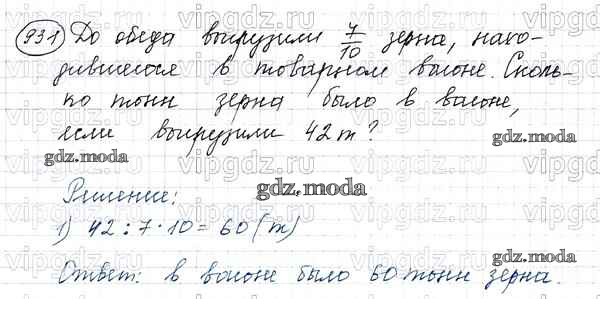 931 До обеда выгрузили 7/10 зерна, нахо-
дившегося в товарном вагоне. Сколь-
ко тонн зерна было в вагоне,
если выгрузили 42 т?
gdz.moda
gdz.moda
Решение:
gdz.moda
1) 42 : 7 · 10 = 60 (т)
gdz.moda
Ответ: в вагоне было 60 тонн зерна.
vipgdz.ru